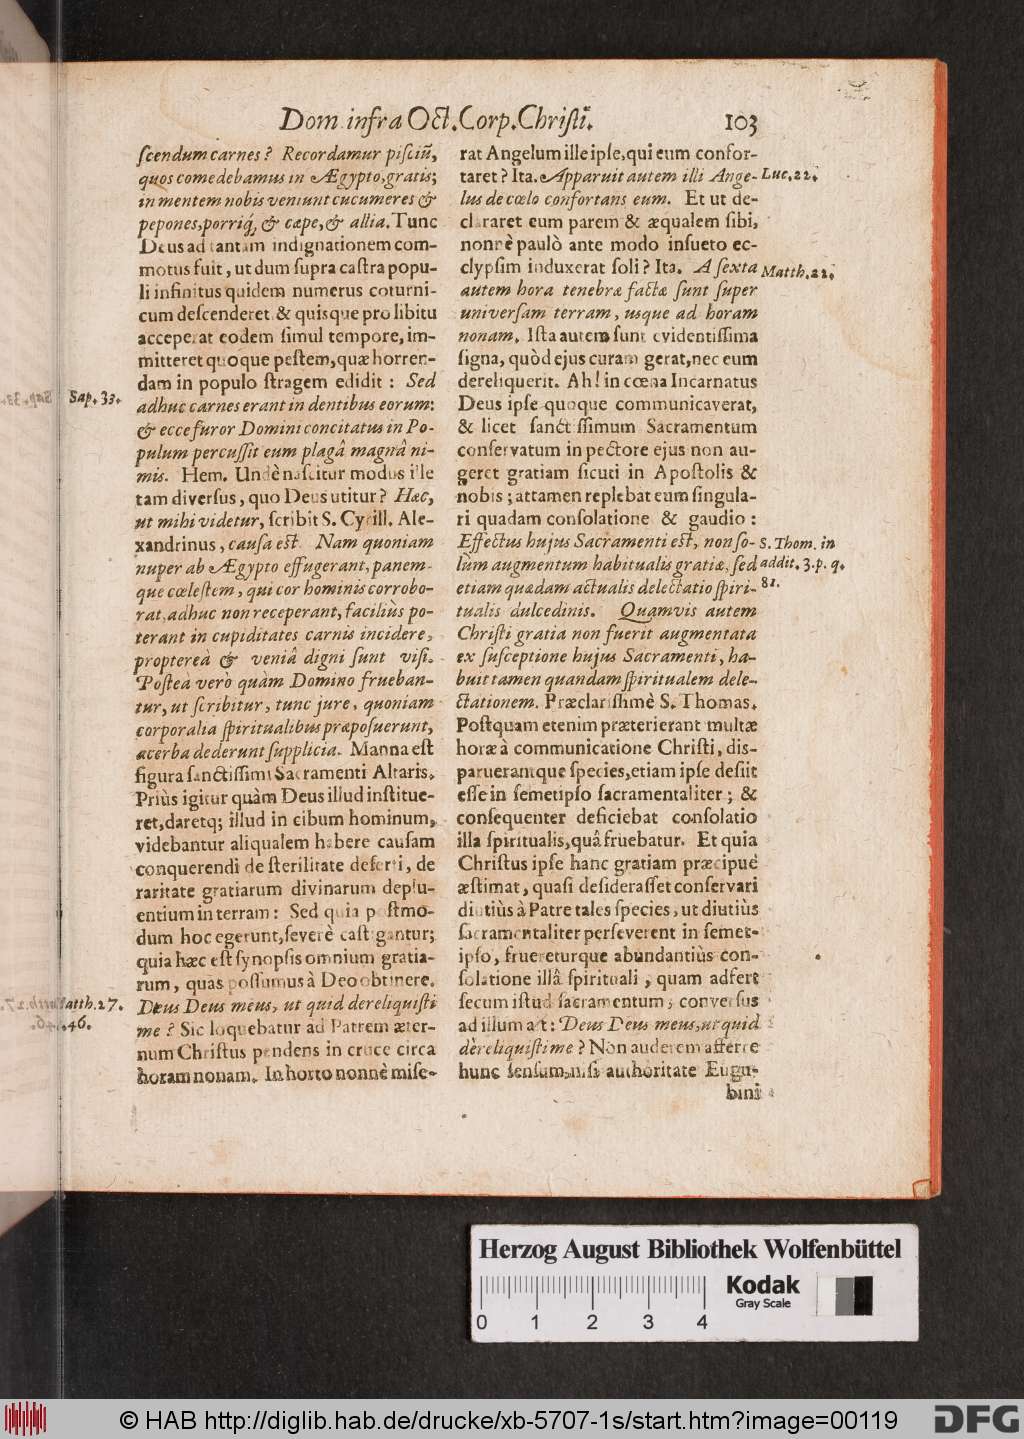 Dom. infra Oct. Corp. Christi. 103
ſcendum carnes? Recordamur piſciũ,
quos comedebamus in Ægypto, gratis;
in mentem nobis veniunt cucumeres &
pepones, porriq́, & cæpe, & allia. Tunc
Deus ad tantam indignationem com-
motus fuit, ut dum ſupra caſtra popu-
li infinitus quidem numerus coturni-
cum deſcenderet & quisque pro libitu
acceperat eodem ſimul tempore, im-
mitteret quoque peſtem, quæ horren-
dam in populo ſtragem edidit: Sed
Sap. 33.
adhuc carnes erant in dentibus eorum:
& ecce furor Domini concitatus in Po-
pulum percuſſit eum plagâ magnâ ni-
mis. Hem. Undè naſcitur modus ille
tam diverſus, quo Deus utitur? Hæc,
ut mihi videtur, ſcribit S. Cyrill. Ale-
xandrinus, cauſa eſt. Nam quoniam
nuper ab Ægypto effugerant, panem-
que cœleſtem, qui cor hominis corrobo-
rat, adhuc non receperant, faciliùs po-
terant in cupiditates carnis incidere,
proptereà & veniâ digni ſunt viſi.
Poſteà verò quàm Domino frueban-
tur, ut ſcribitur, tunc jure, quoniam
corporalia ſpiritualibus præpoſuerunt,
acerba dederunt ſupplicia. Manna eſt
figura ſanctiſſimi Sacramenti Altaris.
Priùs igitur quàm Deus illud inſtitue-
ret, daretq; illud in cibum hominum,
videbantur aliqualem habere cauſam
conquerendi de ſterilitate deſerti, de
raritate gratiarum divinarum deplu-
entium in terram: Sed quia poſtmo-
dum hoc egerunt, ſeverè caſtigantur;
quia hæc eſt ſynopſis omnium gratia-
rum, quas poſſumus à Deo obtinere.
Matth. 27.
46.
Deus Deus meus, ut quid dereliquiſti
me? Sic loquebatur ad Patrem æter-
num Chriſtus pendens in cruce circa
horam nonam. In horto nonnè miſe-
rat Angelum ille ipſe, qui eum confor-
taret? Ita. Apparuit autem illi Ange-
Luc. 22.
lus de cœlo confortans eum. Et ut de-
clararet eum parem & æqualem ſibi,
nonnè paulò ante modo inſueto ec-
clypſim induxerat ſoli? Ita. A ſexta
Matth. 22.
autem hora tenebræ factæ ſunt ſuper
univerſam terram, usque ad horam
nonam. Iſta autem ſunt evidentiſſima
ſigna, quòd ejus curam gerat, nec eum
dereliquerit. Ah! in cœna Incarnatus
Deus ipſe quoque communicaverat,
& licet ſanctiſſimum Sacramentum
conſervatum in pectore ejus non au-
geret gratiam ſicuti in Apoſtolis &
nobis; attamen replebat eum ſingula-
ri quadam conſolatione & gaudio:
Effectus hujus Sacramenti eſt, non ſo-
S. Thom. in
lùm augmentum habitualis gratiæ, ſed
addit. 3. p. q.
etiam quædam actualis delectatio ſpiri-
81.
tualis dulcedinis. Quamvis autem
Chriſti gratia non fuerit augmentata
ex ſuſceptione hujus Sacramenti, ha-
buit tamen quandam ſpiritualem dele-
ctationem. Præclariſſimè S. Thomas.
Poſtquam etenim præterierant multæ
horæ à communicatione Chriſti, dis-
parueruntque ſpecies, etiam ipſe deſiit
eſſe in ſemetipſo ſacramentaliter; &
conſequenter deficiebat conſolatio
illa ſpiritualis, quâ fruebatur. Et quia
Chriſtus ipſe hanc gratiam præcipuè
æſtimat, quaſi deſideraſſet conſervari
diutiùs à Patre tales ſpecies, ut diutiùs
ſacramentaliter perſeverent in ſemet-
ipſo, frueretur que abundantiùs con-
ſolatione illâ ſpirituali, quam adfert
ſecum iſtud ſacramentum; converſus
ad illum ait: Deus Deus meus, ut quid
dereliquiſti me? Non auderem afferre
hunc ſenſum, niſi authoritate Eugu-
bini
Herzog August Bibliothek Wolfenbüttel
Kodak
Gray Scale
0 1 2 3 4
© HAB http://diglib.hab.de/drucke/xb-5707-1s/start.htm?image=00119
DFG